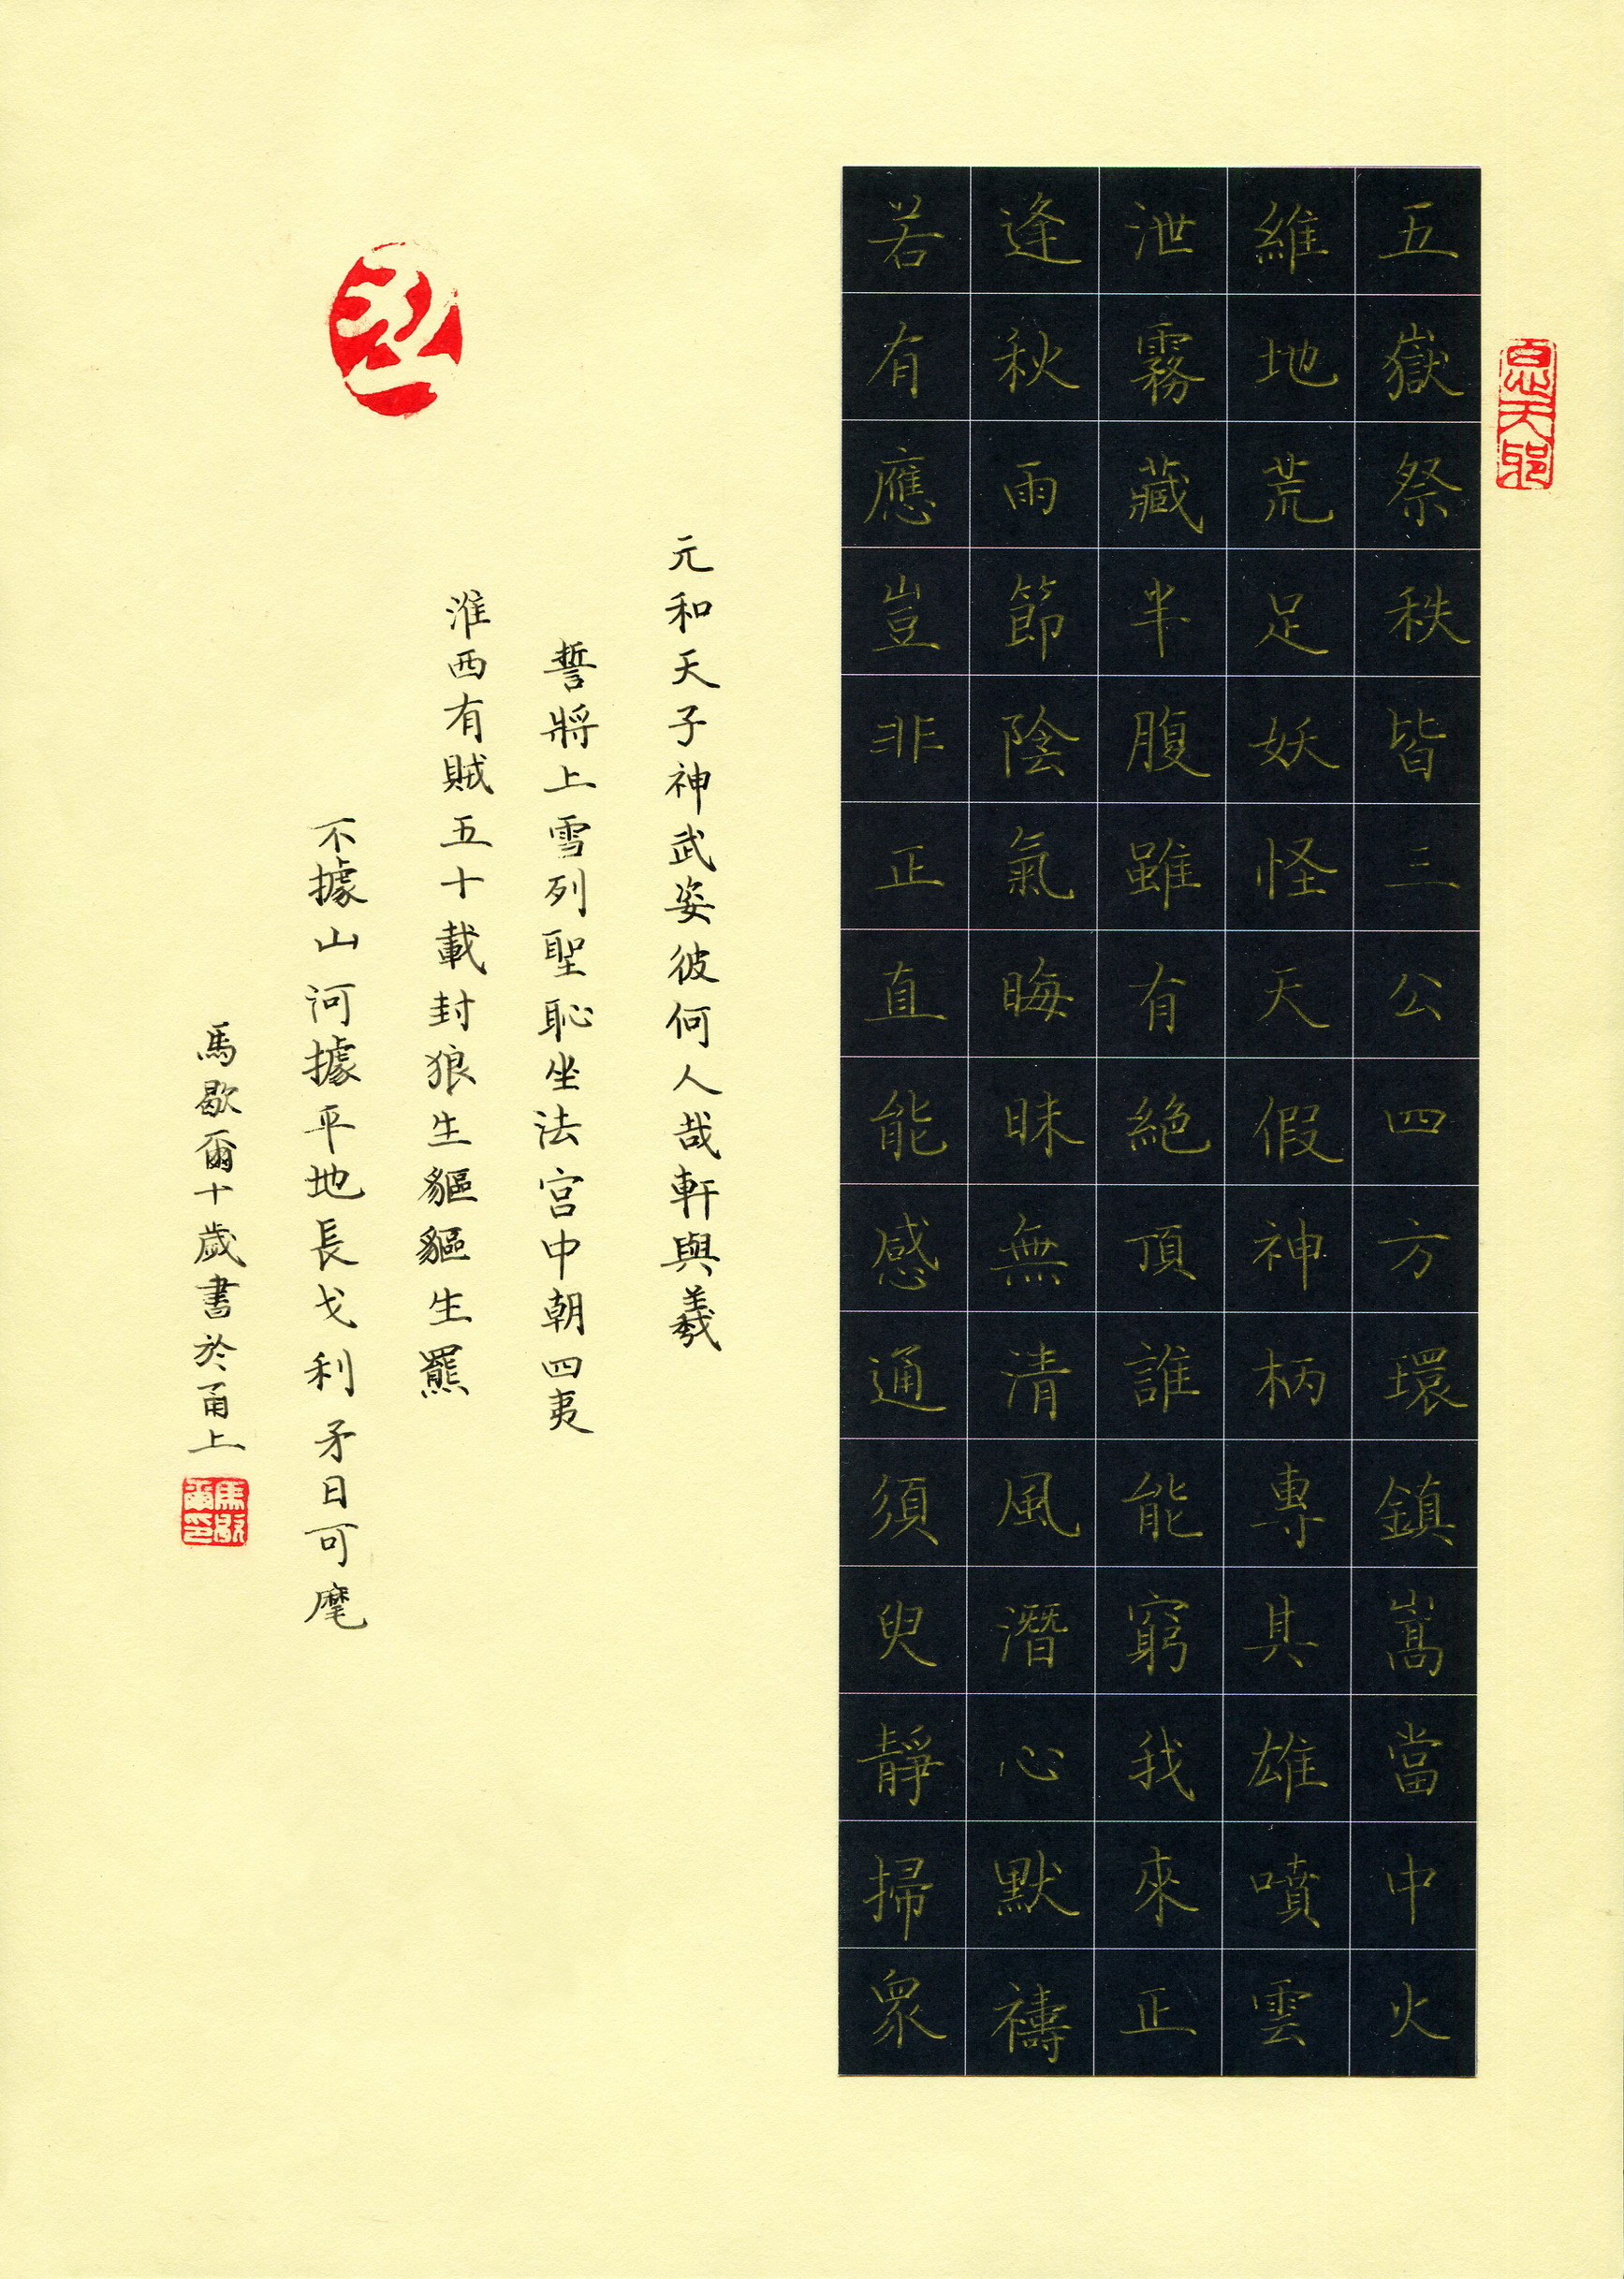 五嶽祭秩皆三公四方環鎮嵩當中火
維地荒足妖怪天假神柄專其雄噴雲
泄霧藏半腹雖有絕頂誰能窮我來正
逢秋雨節陰氣晦昧無清風潛心默禱
若有應豈非正直能感通須臾靜掃眾
元和天子神武姿彼何人哉軒與羲
誓將上雪列聖恥坐法宮中朝四夷
淮西有賊五十載封狼生貙貙生羆
不據山河據平地長戈利矛日可麾
馬歇爾十歲書於甬上
馬歇爾印